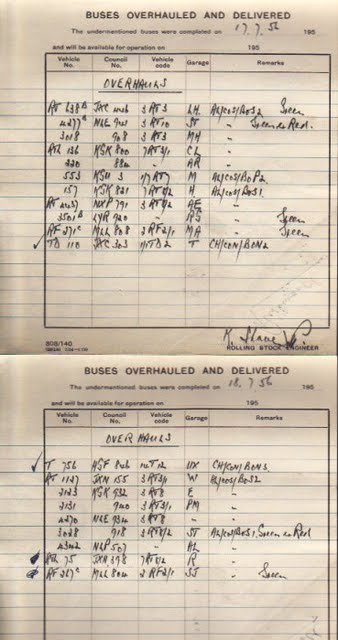 BUSES OVERHAULED AND DELIVERED
The undermentioned buses were completed on 17.7.56 195
and will be available for operation on 195
Vehicle No. Council No. Vehicle code Garage Remarks
OVERHAULS
RT 638 JXC 3 RT3 LH AL/COS/BOS2 Green
4277 NLE 3 RT10 ST " Green to Red
3018 908 3 RT3 MH "
RTL 136 KSK 800 7RT3/1 CL "
220 884 " AR "
553 KSW 3 17RT7 M AL/COS/BOP2
157 KSK 821 7RT8/2 H AL/COS/BOS1
RT 2437 NXP 791 3 RT8/2 AE "
3501 LYR 920 " RS " Green
RF 271 MLL 808 2 RF2/1 MA " Green
TD 110 JXC 303 1/1TD2 T CH/CON/BON2
808/140
ROLLING STOCK ENGINEER
BUSES OVERHAULED AND DELIVERED
The undermentioned buses were completed on 18.7.56 195
and will be available for operation on 195
Vehicle No. Council No. Vehicle code Garage Remarks
OVERHAULS
T 756 10T12 UX CH/CON/BON3
RT 1127 JXN 155 3 RT3/1 W AL/COS/BOS2
2123 KSK 932 3 RT8 E "
2131 940 3 RT3/1 PM "
4270 NLE 934 3 RT8 " "
3028 918 3 RT8/2 ST AL/COS/BOS1 Green to Red
4342 NLP 507 " AL "
RTL 75 JXN 398 7RT8/2 R "
RF 267 MLL 804 2 RF2/1 SJ " Green